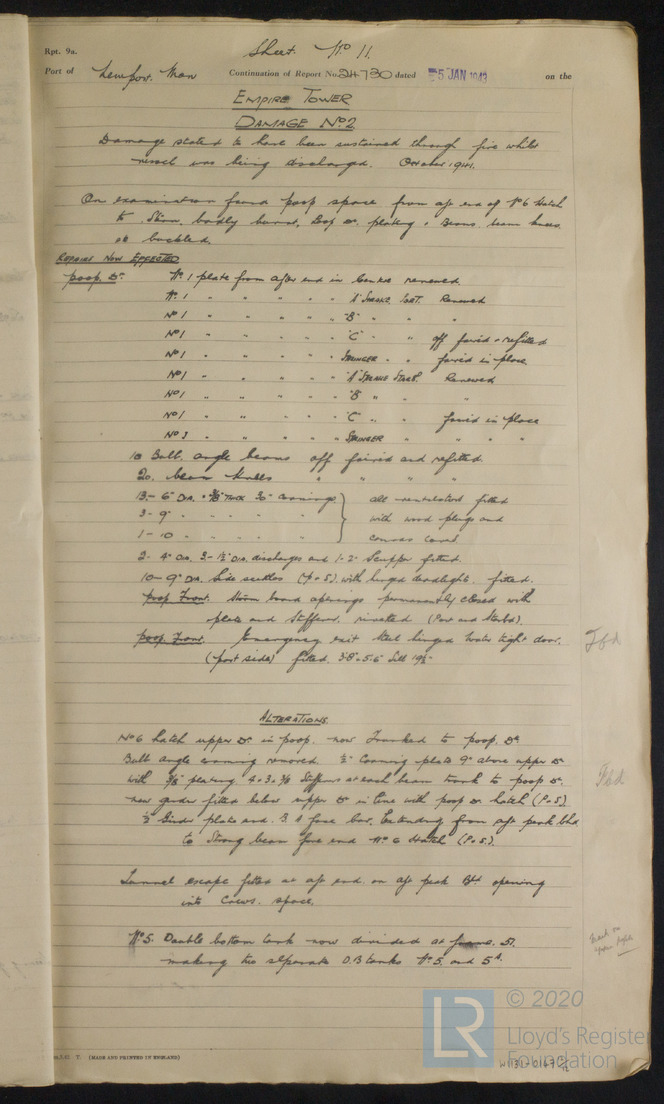 Rpt. 9a.
Sheet No 11.
Port of Newport. Mon Continuation of Report No. 24730 dated 5 JAN 1943 on the
EMPIRE TOWER
DAMAGE No 2
Damage stated to have been sustained through fire whilst
vessel was being discharged. October 1941.
On examination found poop space from aft end of No 6 Hatch
to Stern, badly burnt, Poop Dk. plating & Beams, beam knees
etc buckled.
REPAIRS NOW EFFECTED
Poop Dk. No 1 plate from after end in Centre renewed.
No. 1 " " " " " 'A' STRAKE PORT. Renewed
No 1 " " " " " 'B' " " "
No 1 " " " " " 'C' " " off faired & refitted
No 1 " " " " " STRINGER " " faired in place
No 1 " " " " " 'A' STRAKE STARB. Renewed
No 1 " " " " " 'B' " " "
No 1 " " " " " 'C' " " faired in place
No 3 " " " " " STRINGER " " "
10 Bulb angle beams off faired and refitted
20. beam knees " " " "
13 - 6" DIA. × 3/8" THICK 30" Coamings } all ventilators fitted
3 - 9" " " " " with wood plugs and
1 - 10" " " " " canvas covers
2 - 4" DIA. 3 - 1½" DIA. discharges and 1 - 2" Scupper fitted.
10 - 9" DIA. Side scuttles (P&S) with hinged deadlights. fitted.
Poop Front. Storm board openings permanently closed with
plate and Stiffener, riveted (Port and Starbd).
Poop Front. Emergency exit Steel hinged Water tight door.
(port side) fitted. 3'8" × 5'6" Sill 19½"
ALTERATIONS.
No 6 Hatch upper Dk in poop. now Trunked to poop. Dk
Bulb angle coaming removed ½" Coaming plate 9" above upper Dk
with 3/8" plating 4 × 3 × 3/8 Stiffeners at each beam trunk to poop Dk.
new girder fitted below upper Dk in line with poop Dk. hatch (P&S).
½ Girder plate and face bar, Extending from aft peak bhd
to Strong beam fore end No 6 Hatch (P&S).
Tunnel escape fitted at aft end. on aft peak Bhd opening
into Crews. space.
No 5. Double bottom tank now divided at frame. 51.
making two separate D.B tanks No 5. and 5A.
(MADE AND PRINTED IN ENGLAND)
© 2020
LR Lloyd's Register
Foundation